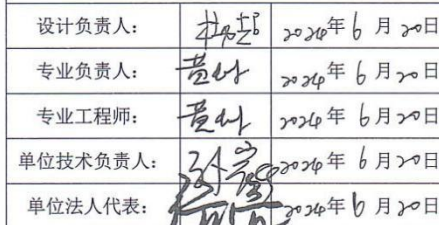 设计负责人: 2024年6月20日
专业负责人: 2024年6月20日
专业工程师: 2024年6月20日
单位技术负责人: 2024年6月20日
单位法人代表: 2024年6月20日